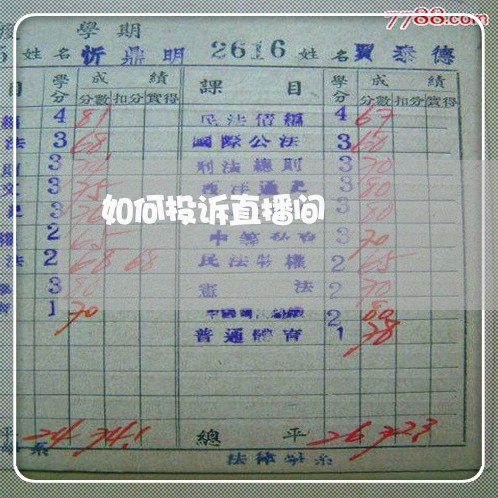 7788.com
學期
姓名 忻鼎明 2616 姓名 賈泰德
目 學分 成績 課目 學分 成績
分數 扣分 實得 分數 扣分 實得
4 81 民法債編 4 67
法 3 68 國際公法 3 60
則 3 刑法總則 3 70
3 75 3 80
如何投诉直播间
3 3 80
2 65 3 70
法 2 68 68 民法物權 2 65
3 80 憲法 2 70
育 1 70 2 80
普通體育 1 78
平 24 74.1 總平 26 72.3
系 法律學系